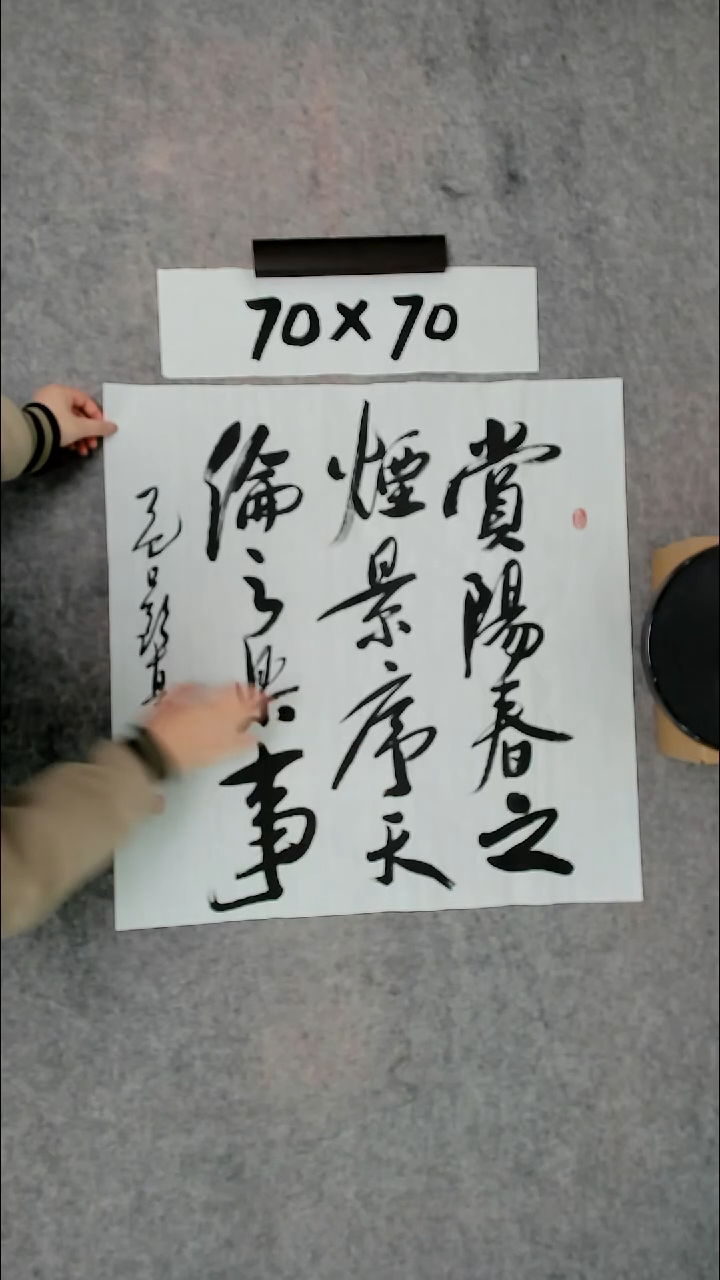 70×70
賞陽春之
煙景序天
倫之興事